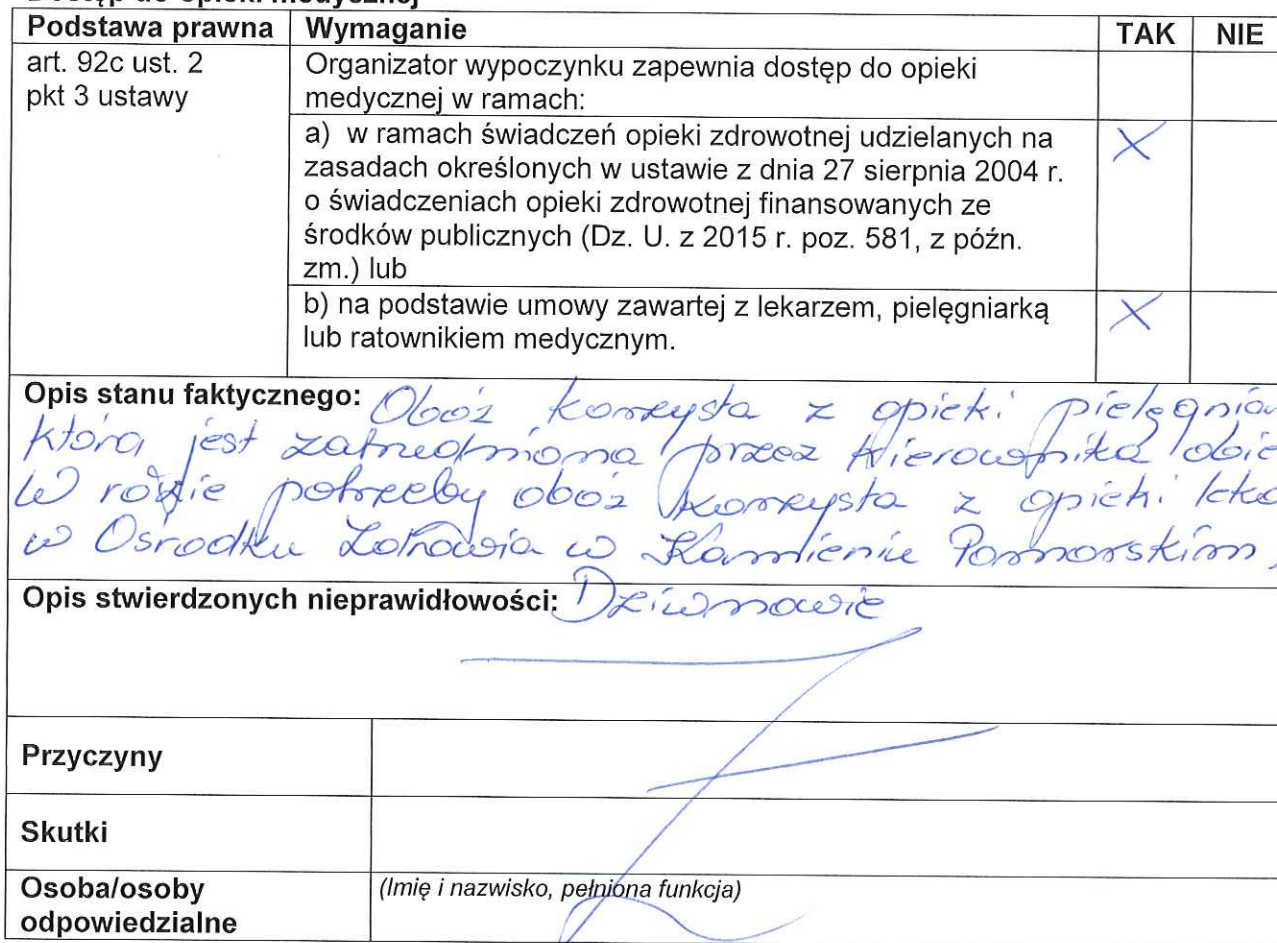 Podstawa prawna | Wymaganie | TAK | NIE
art. 92c ust. 2
pkt 3 ustawy
Organizator wypoczynku zapewnia dostęp do opieki
medycznej w ramach:
a) w ramach świadczeń opieki zdrowotnej udzielanych na
zasadach określonych w ustawie z dnia 27 sierpnia 2004 r.
o świadczeniach opieki zdrowotnej finansowanych ze
środków publicznych (Dz. U. z 2015 r. poz. 581, z późn.
zm.) lub
X
b) na podstawie umowy zawartej z lekarzem, pielęgniarką
lub ratownikiem medycznym.
X
Opis stanu faktycznego: Obóz korzysta z opieki pielęgniar
która jest zatrudniona przez kierownika obie
W razie potrzeby obóz korzysta z opieki leka
w Ośrodku Zdrowia w Kamieniu Pomorskim,
Opis stwierdzonych nieprawidłowości: Dziwnowie
Przyczyny
Skutki
Osoba/osoby
odpowiedzialne
(Imię i nazwisko, pełniona funkcja)